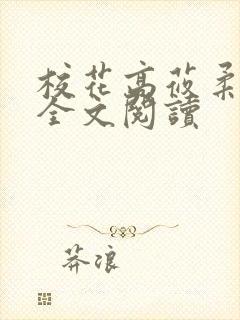 校花高莜柔
全文閱讀
莽浪